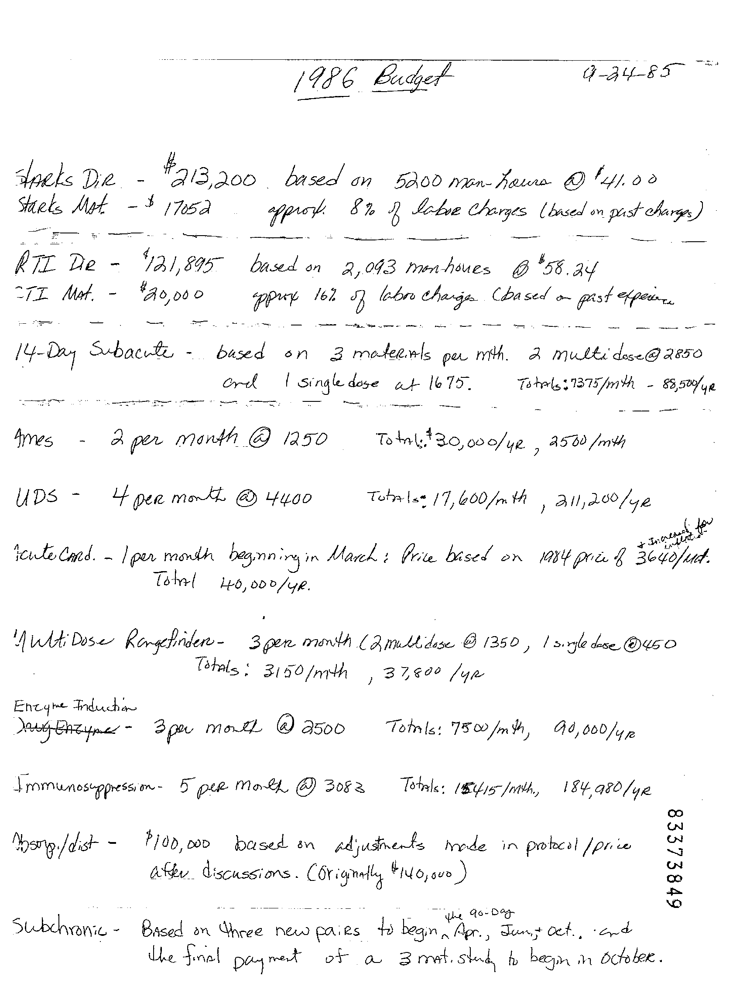 1986 Budget 9-24-85
Starks Dir - $213,200 based on 5200 man-hours @ $41.00
Starks Mat. - $ 17052 approx. 8% of labor charges (based on past charges)
RTI Dir - $121,895 based on 2,093 man-hours @ $58.24
RTI Mat. - $20,000 approx 16% of labor charges (based on past experience
14-Day Subacute - based on 3 materials per mth. 2 multidose @ 2850
and 1 single dose at 1675. Totals: 7375/mth - 88,500/yr
Ames - 2 per month @ 1250 Total: $30,000/yr, 2500/mth
UDS - 4 per month @ 4400 Totals: 17,600/mth, 211,200/yr
+ Increased for
Acute Card. - 1 per month beginning in March: Price based on 1984 price of 3640/mat.
Total 40,000/yr.
MultiDose Rangefinder - 3 per month (2 multidose @ 1350, 1 single dose @ 450
Totals: 3150/mth, 37,800/yr
Enzyme Induction
Drug Enzymes - 3 per month @ 2500 Totals: 7500/mth, 90,000/yr
Immunosuppression - 5 per month @ 3083 Totals: 15415/mth, 184,980/yr
Absorp./dist - $100,000 based on adjustments made in protocol/price
after discussions. (Originally $140,000)
83373849
the 90-Day
Subchronic - Based on three new pairs to begin Apr., Jun, + Oct., and
the final payment of a 3 mat. study to begin in October.